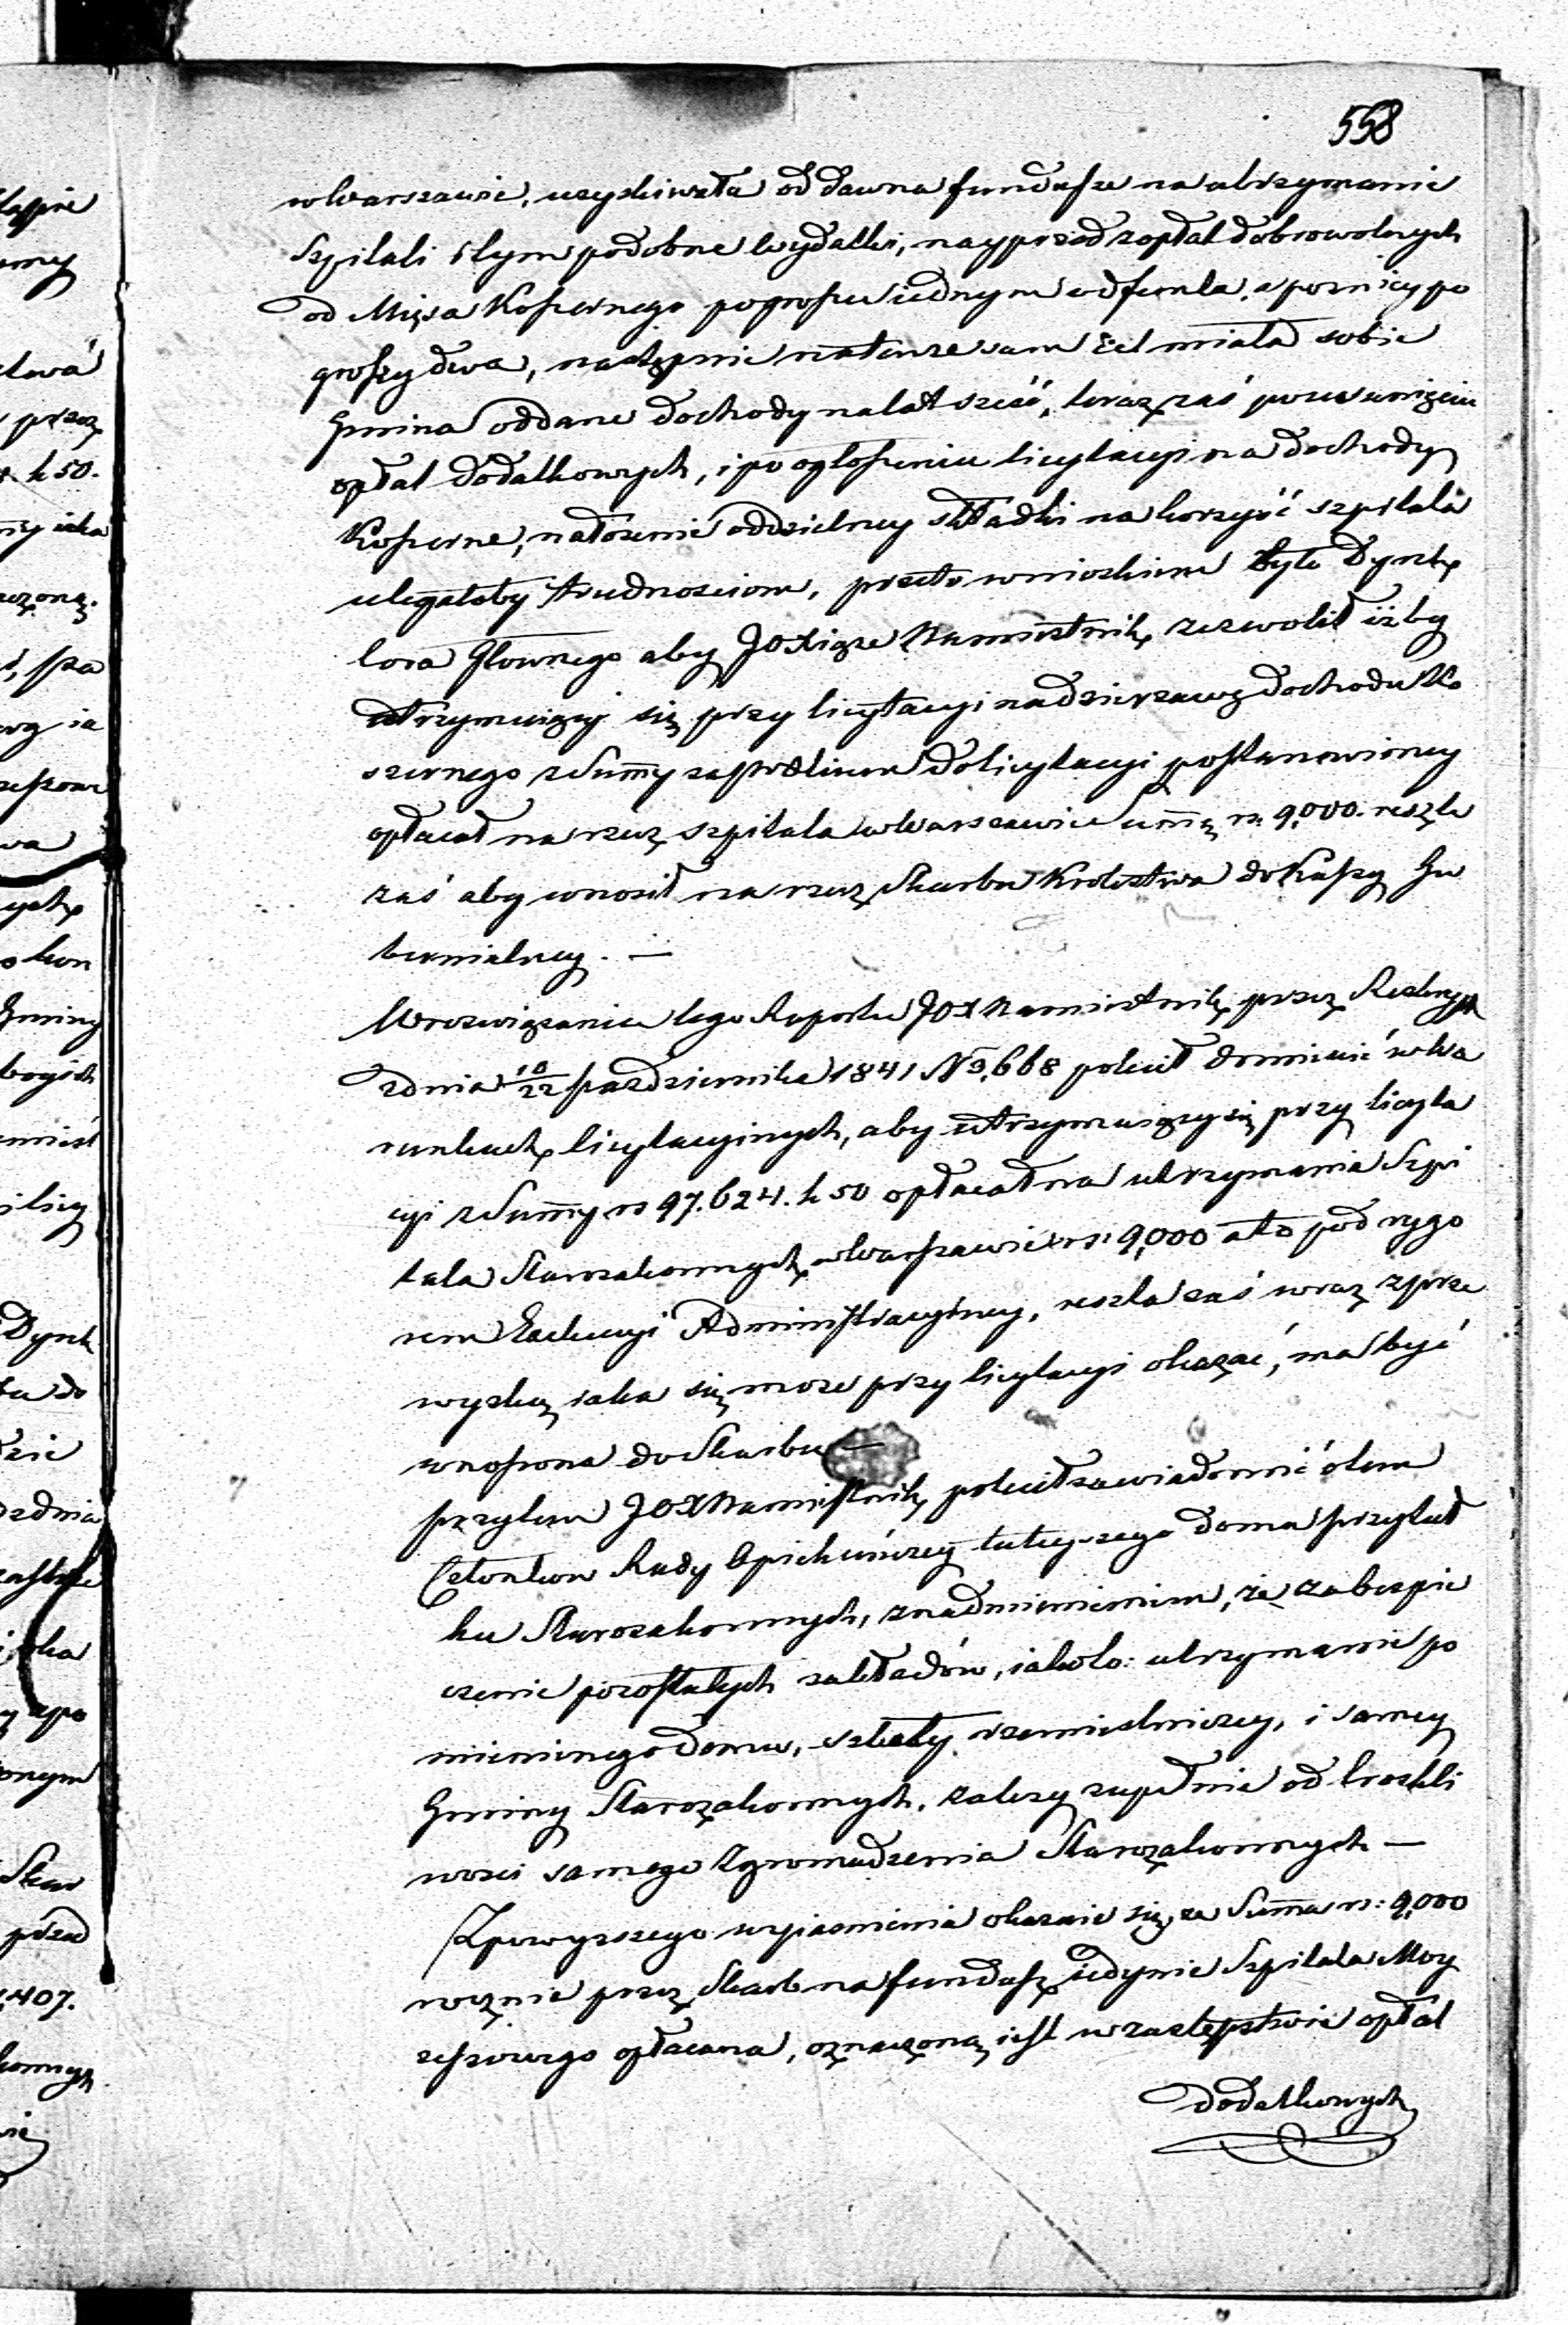 558
w Warszawie, uzyskiwała od dawna fundusze na utrzymanie
Szpitali i tym podobne wydatki, nayprzod z opłat dobrowolnych
od Mięsa Koszernego po groszu iednym od funta, a pozniey po
groszy dwa, następnie na tenże sam cel miała sobie
Gmina oddane dochody na lat sześć, teraz zaś po usunięciu
opłat dodatkowych, i po ogłoszeniu licytacyi na dochody
Koszerne, nałożenie oddzielney składki na korzyść szpitala
ulegałoby trudnosciom, przeto wnioskiem było Dyrek
tora Głownego aby JO Xiąże Namiestnik zezwolił iżby
utrzymuiący się przy licytacyi na dzierzawę dochodu Ko
szernego z Summy za prætium do licytacyi postanowioney
opłacał na rzecz szpitala w Warszawie Summę rs. 9,000. resztę
zaś aby wnosił na rzecz Skarbu Krolestwa do Kassy Gu
bernialney. —
W rozwiązaniu tego Raportu JOX Namiestnik przez Reskrypt
z dnia 10/22 Pazdziernika 1841 No. 668 polecił domieścić w Wa
runkach licytacyinych, aby utrzymuiący się przy licyta
cyi z Summy rs 97.624. k 50 opłacał na utrzymania Szpi
tala Starozakonnych w Warszawie rs: 9,000 a to pod rygo
rem Exekucyi Administracyiney, reszta zaś wraz z prze
wyżką iaka się może przy licytacyi okazać, ma być
wnoszona do Skarbu —
Przytem JOX Namiestnik polecił zawiadomić o tem
Członkow Rady Opiekuńczey tuteyszego domu przytuł
ku Starozakonnych, z nadmienieniem, że zabespie
czenie pozostałych zakładów, iakoto: utrzymanie po
mienionego domu, szkoły rzemieslniczey, i samey
Gminy Starozakonnych, zależy zupełnie od troskli
wosci samego Zgromadzenia Starozakonnych —
Z powyższego wyiasnienia okazuie się, że Summa rs: 9,000
rocznie przez Skarb na fundusz iedynie Szpitala Moy
zeszowego opłacana, oznaczoną iest w zastępstwie opłat
dodatkowych